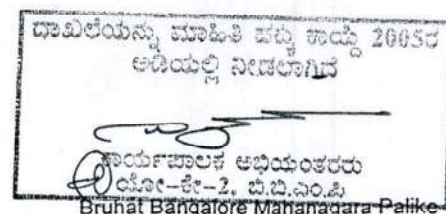 ದಾಖಲೆಯನ್ನು ಮಾಹಿತಿ ಹಕ್ಕು ಕಾಯ್ದೆ 2005ರ
ಅಡಿಯಲ್ಲಿ ನೀಡಲಾಗಿದೆ
ಕಾರ್ಯಪಾಲಕ ಅಭಿಯಂತರರು
ಯೋ-ಕೇ-2, ಬಿ.ಬಿ.ಎಂ.ಪಿ
Bruhat Bangalore Mahanagara Palike-